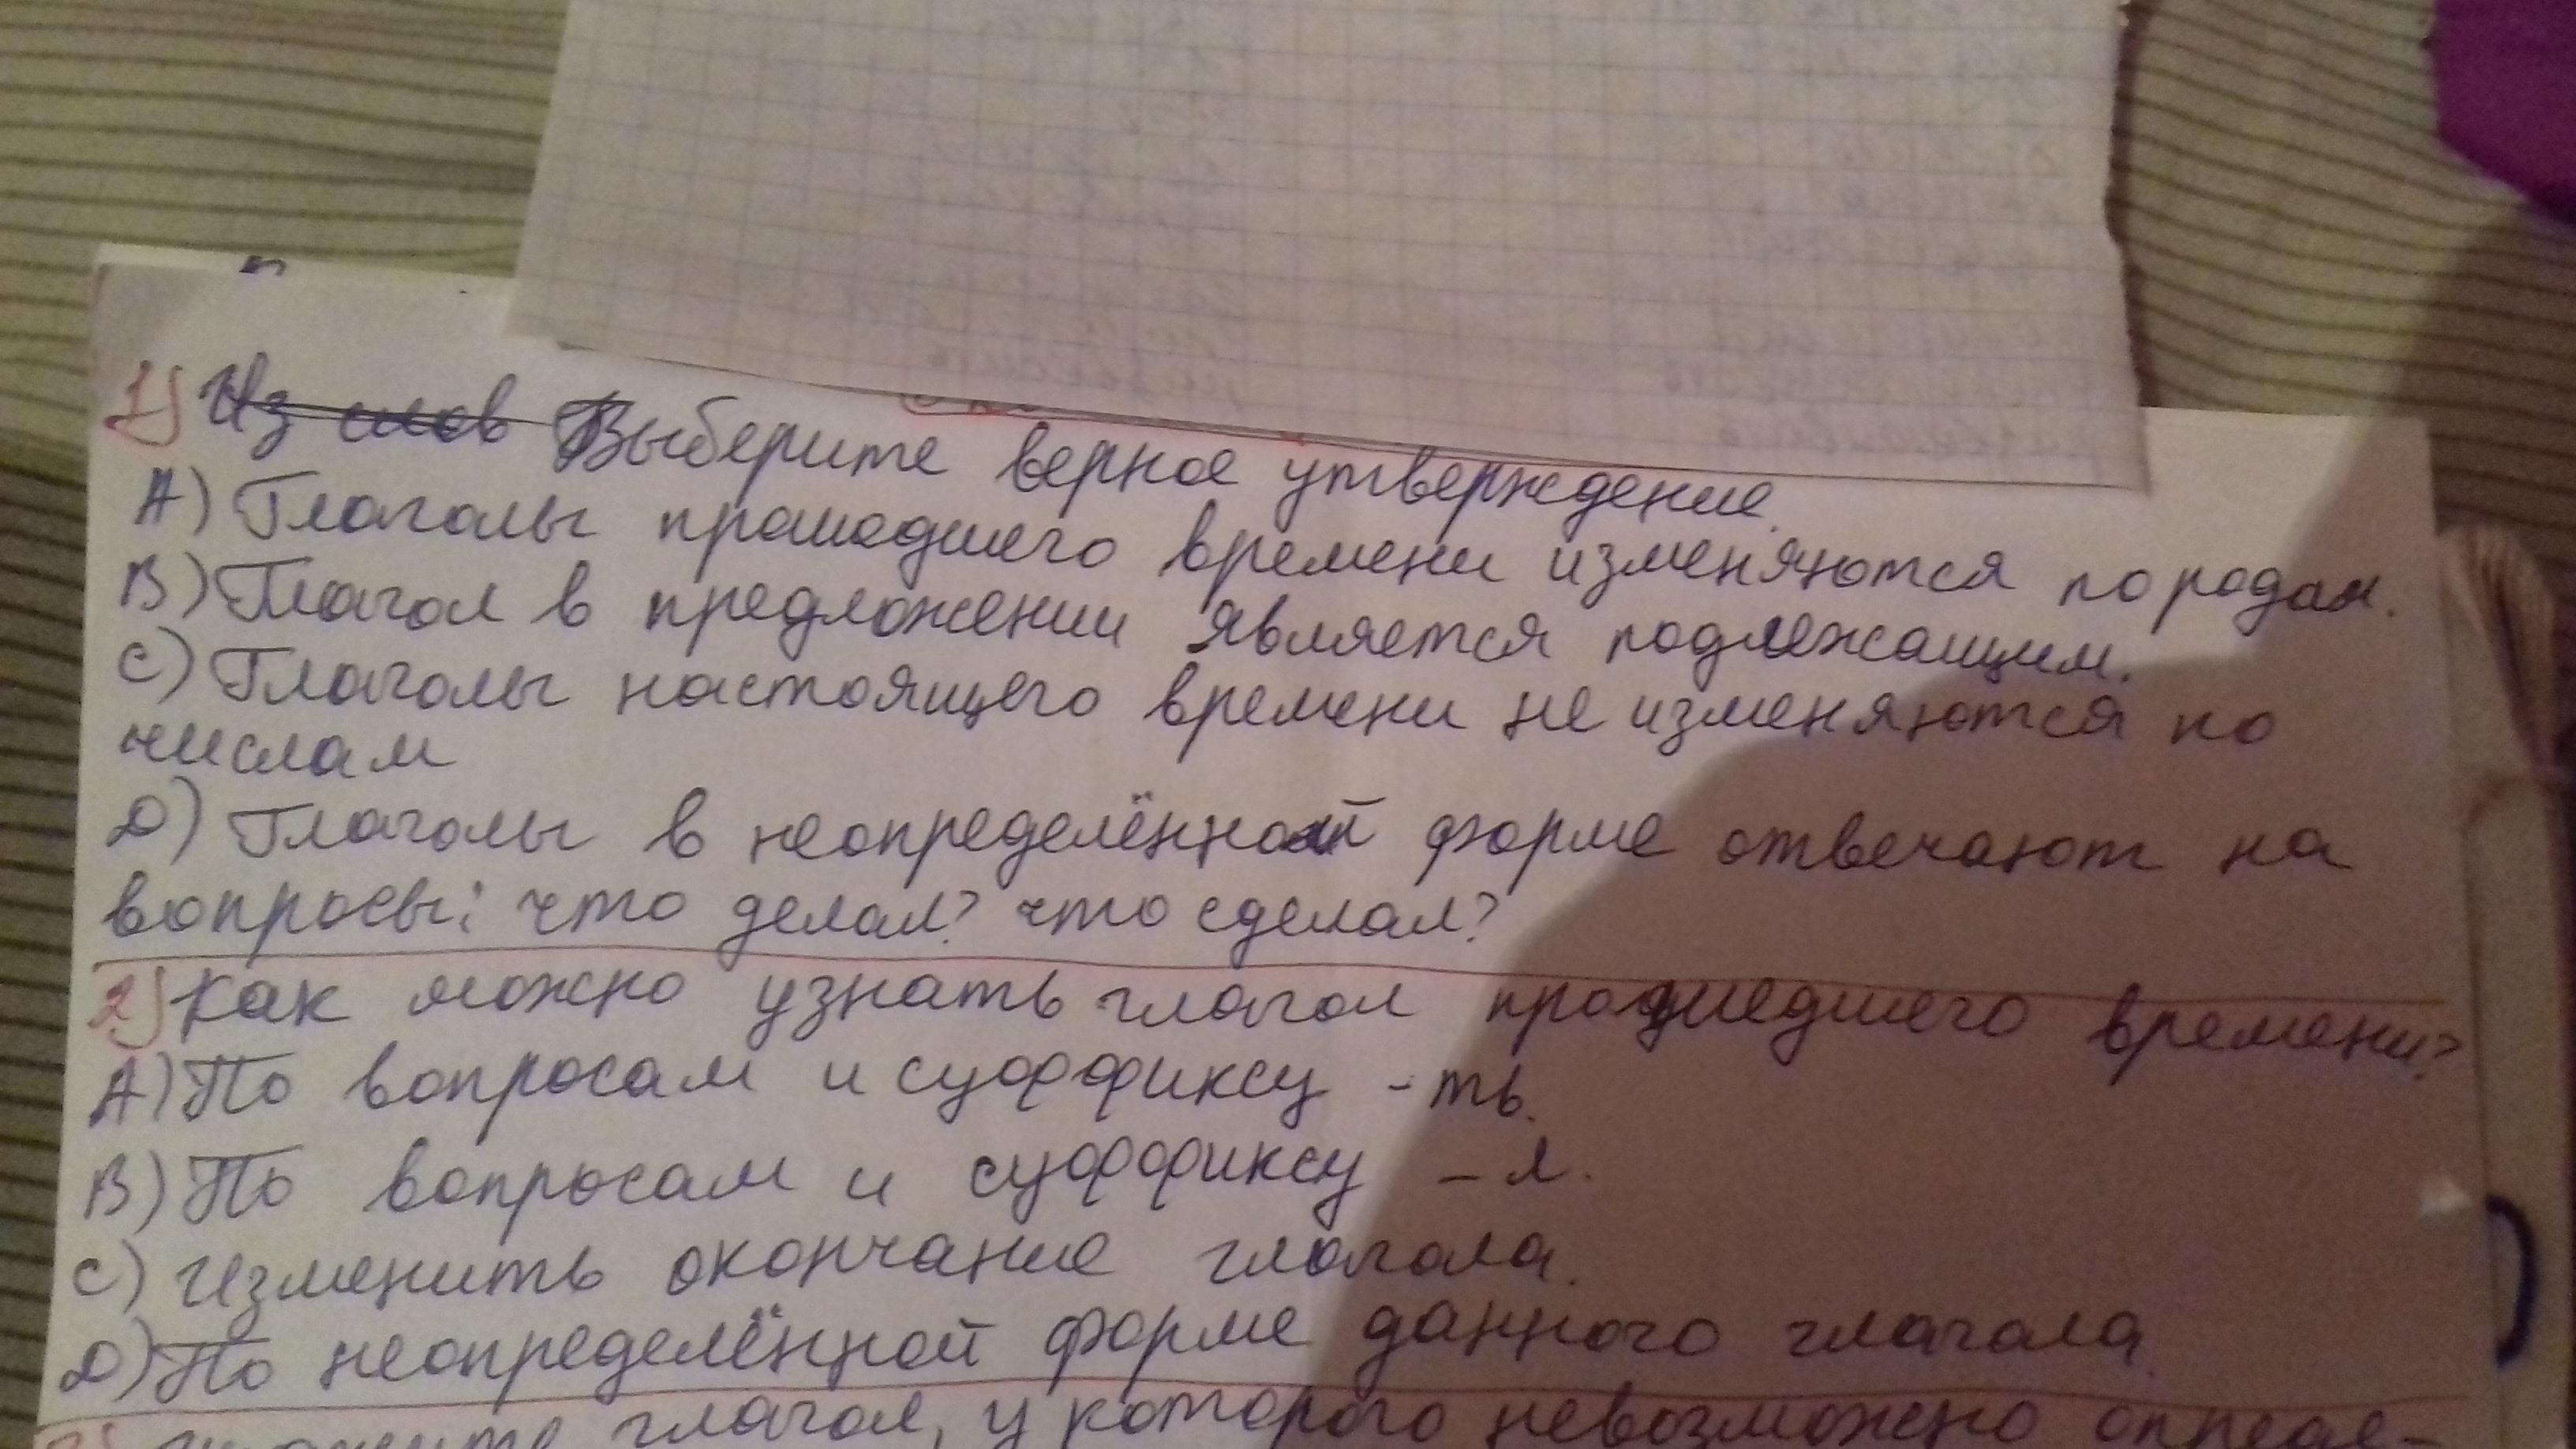 1) Из слов Выберите верное утверждение.
А) Глаголы прошедшего времени изменяются по родам.
В) Глагол в предложении является подлежащим.
С) Глаголы настоящего времени не изменяются по
числам
D) Глаголы в неопределённой форме отвечают на
вопросы: что делал? что сделал?
2) Как можно узнать глагол прошедшего времени?
А) По вопросам и суффиксу -ть.
В) По вопросам и суффиксу -л.
С) Изменить окончание глагола.
D) По неопределённой форме данного глагола
глагол, у которого невозможно опреде-